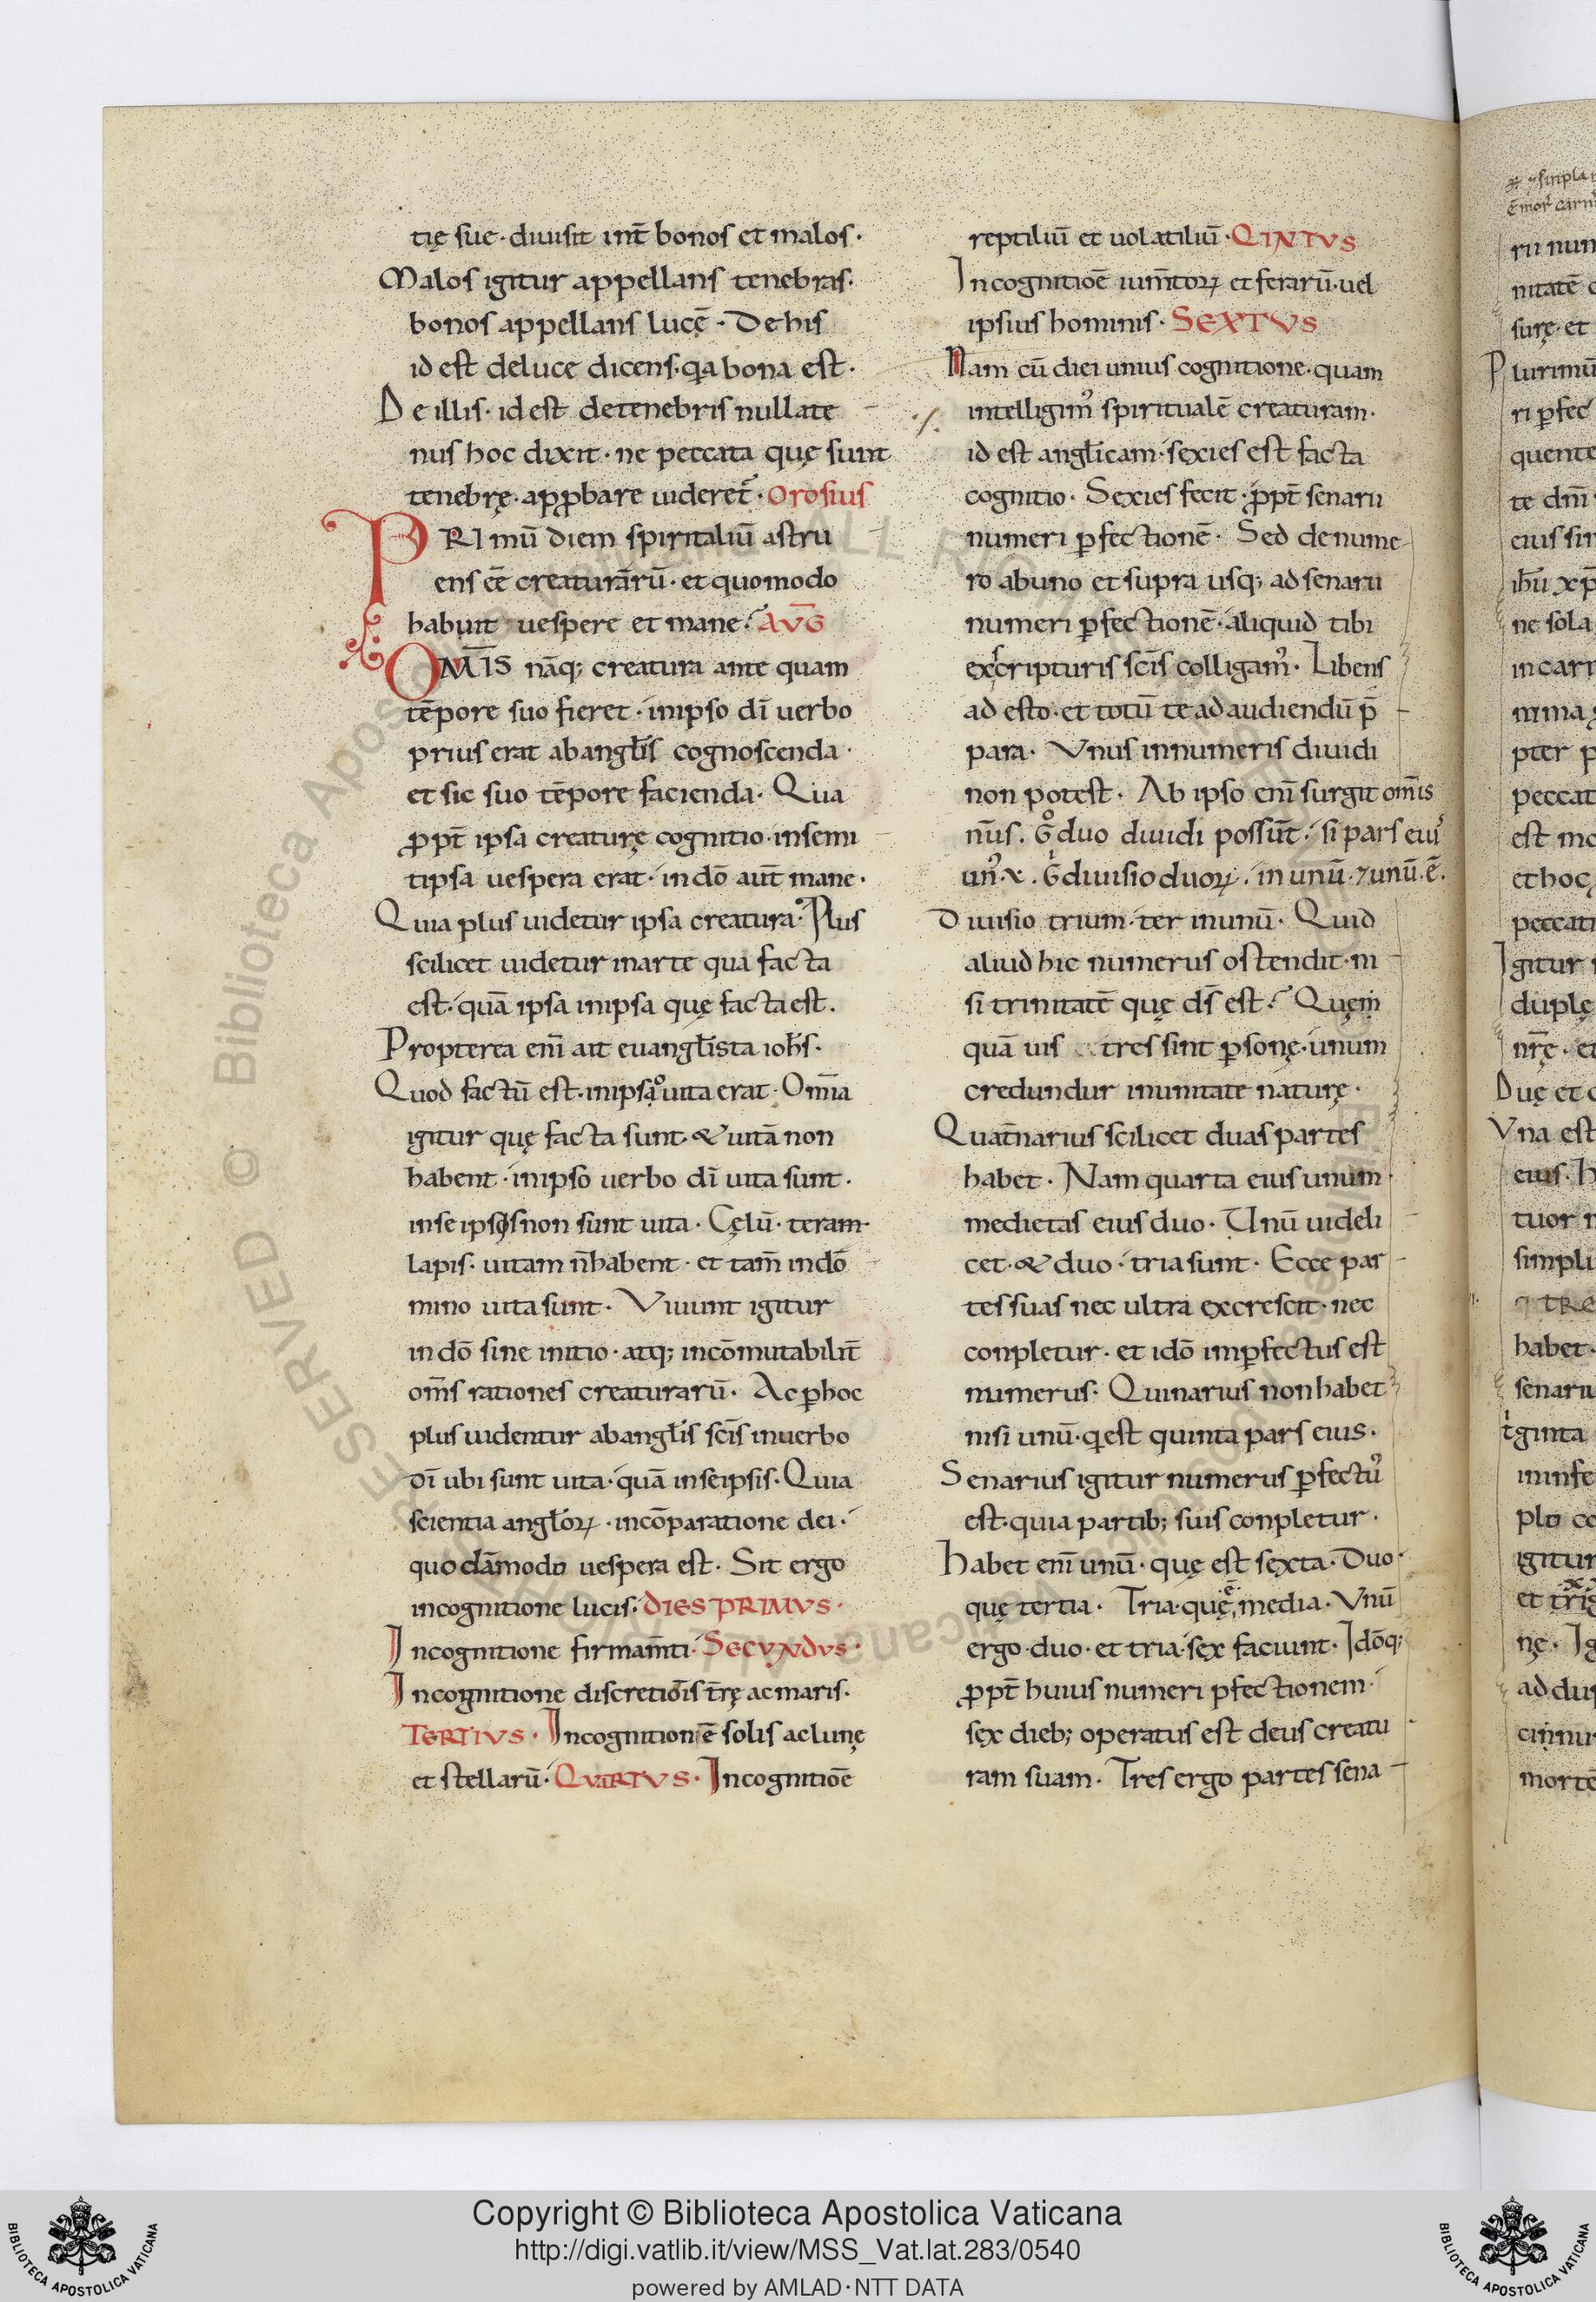 tię sue · diuisit int̄ bonos et malos ·
Malos igitur appellans tenebras ·
bonos appellans lucē · De his
id est de luce dicens · qa bona est ·
De illis · id est de tenebris nullate
nus hoc dixit · ne peccata quę sunt
tenebrę · apꝓbare uideret̄ · Orosius
PRI mū diem spiritaliū astru
ens eē creaturarū · et quomodo
habuit uespere et mane · AVḠ
OM̄IS nāq; creatura ante quam
tēpore suo fieret · in ipso dī uerbo
prius erat ab anglis cognoscenda ·
et sic suo tēpore facienda · Qua
ꝓpt̄ ipsa creaturę cognitio · in semi
tipsa uespera erat · in dō aut̄ mane ·
Quia plus uidetur ipsa creatura · Plus
scilicet uidetur in arte qua facta
est · quā ipsa in ipsa quę facta est .
Propterea enī ait euanglista iohs ·
Quod factū est · in ipso uita erat · Om̄ia
igitur quę facta sunt · & uitā non
habent · in ipso uerbo dī uita sunt ·
in se ipsis non sunt uita · Cęlū · teram ·
lapis · uitam n̄ habent · et tam̄ in dō
mino uita sunt · Viuunt igitur
in dō sine initio · atq; incōmutabilit̄
om̄s rationes creaturarū · Ac ꝑ hoc
plus uidentur ab anglis sc̄is in uerbo
dī ubi sunt uita · quā in se ipsis · Quia
scientia anglorꝝ · in cōparatione dei ·
quodāmodo uespera est · Sit ergo
in cognitione lucis · DIES PRIMVS ·
In cognitione firmam̄ti · SECVNDVS ·
In cognitione discretiōis t̄rę ac maris ·
TERTIVS · In cognitionē solis ac lunę
et stellarū · QVARTVS · In cognitiōe
reptiliū et uolatiliū · QINTVS
In cognitiōe ium̄torꝝ et ferarū · uel
ipsius hominis · SEXTVS
Nam cū diei unius cognitione · quam
intelligim᾿ spiritualē creaturam ·
id est anglicam · sexies est facta
cognitio · Sexies fecit · ꝓpt̄ senarii
numeri ꝑfectionē · Sed de nume
ro ab uno et supra usq; ad senarii
numeri ꝑfectionē · aliquid tibi
ex scripturis sc̄is colligam᾿ · Libens
ad esto · et totū te ad audiendū p̄
para · Vnus in numeris diuidi
non potest · Ab ipso enī surgit om̄is
nūs . G̊ duo diuidi possūt · si pars eiu᾿
un᾿ · x . Ǵ diuisio duorꝝ . in unū · ⁊ unū · ē .
Diuisio trium · ter in unū · Quid
aliud hic numerus ostendit · ni
si trinitatē quę ds̄ est · Quem
quā uis tres sint ꝑsonę · unum
credundur in unitate naturę ·
Quat̄narius scilicet duas partes
habet · Nam quarta eius unum ·
medietas eius duo · Unū uideli
cet · & duo · tria sunt · Ecce par
tes suas nec ultra excrescit · nec
conpletur · et idō imꝑfectus est
numerus · Quinarius non habet
nisi unū · q est quinta pars eius ·
Senarius igitur numerus ꝑfectu᾿
est · quia partib; suis conpletur ·
Habet enī unū · quę est sexta · Duo ·
quę tertia · Tria · quę ē media · Vnū
ergo · duo · et tria · sex faciunt · Idōq;
ꝓpt̄ huius numeri pfectionem ·
sex dieb; operatus est deus creatu
ram suam · Tres ergo partes sena
Copyright © Biblioteca Apostolica Vaticana
http://digi.vatlib.it/view/MSS_Vat.lat.283/0540
powered by AMLAD·NTT DATA
BIBLIOTECA APOSTOLICA VATICANA
BIBLIOTECA APOSTOLICA VATICANA